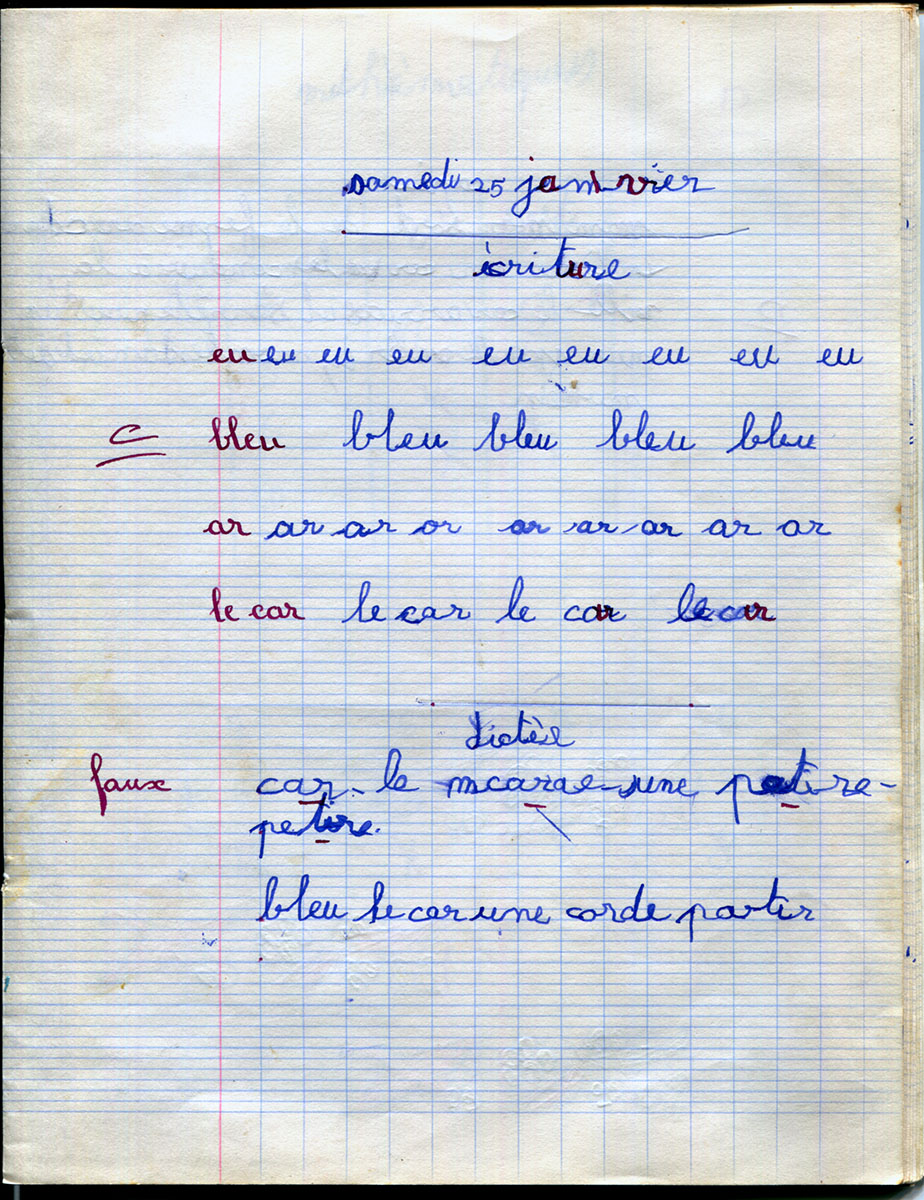 samedi 25 janvier
écriture
eu eu eu eu eu eu eu eu eu
C bleu bleu bleu bleu bleu
ar ar ar or ar ar ar ar ar
le car le car le car le car
dictèe
faux car. le une
bleu le car une corde partir